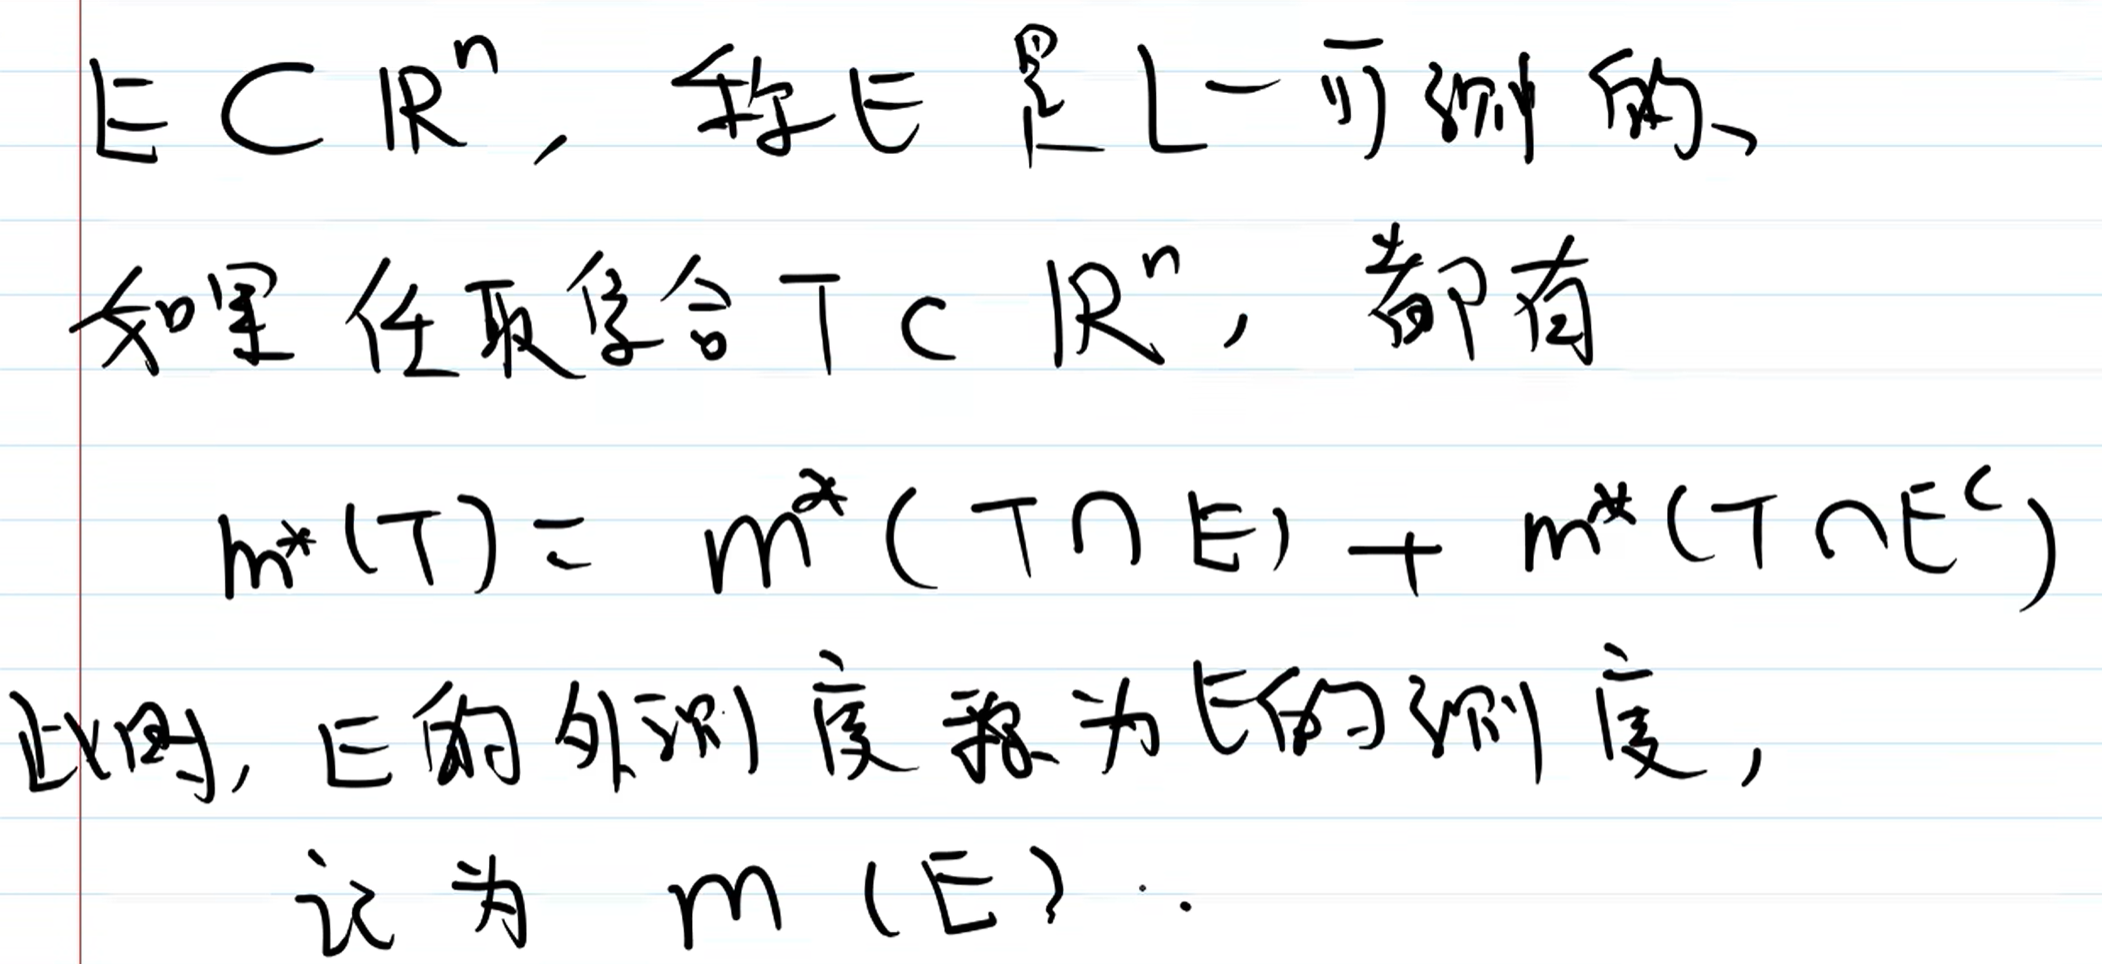 E ⊂ ℝⁿ, 称E是L-可测的、
如果任取集合T ⊂ ℝⁿ, 都有
m*(T) = m*(T∩E) + m*(T∩Eᶜ)
此时, E的外测度称为E的测度,
记为 m(E).